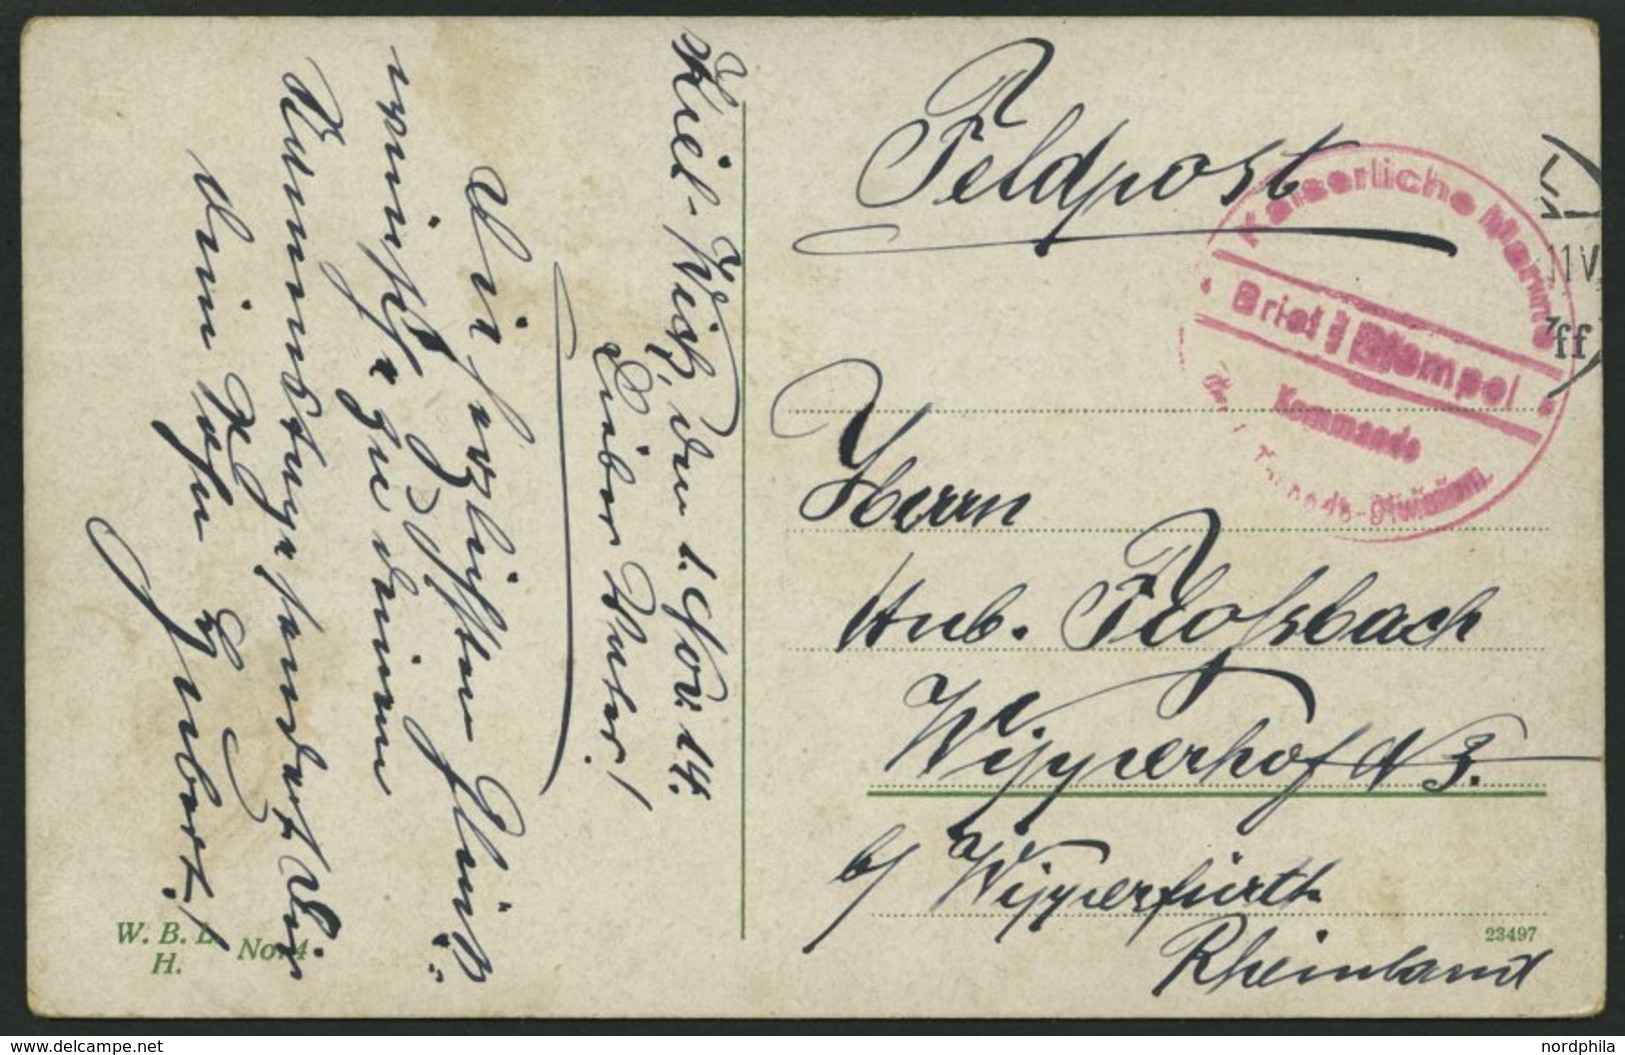 Kiel-Wick, den 1. Nov. 14.
Lieber Vater!
Die herzlichsten Glück-
wünsche zu deinem
Namenstage sendet Dir
Dein Sohn Hubert!
W. B. L.
H.
No. 4
Feldpost
Kaiserliche Marine
Briefstempel
Kommando
Torpedo-Division
Herrn
Hub. Floßbach
Wipperhof N 3.
b/ Wipperfürth
Rheinland
23497
www.delcampe.net
nordphila